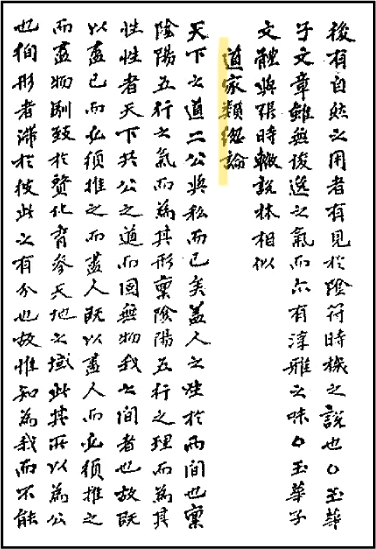 後有自然之用者有見於陰符時機之說也○玉華
子文章雖無俊逸之氣而亦有淳雅之味○玉華子
文體與張時轍說林相似
道家類總論
天下之道二公與私而已矣蓋人之生於兩間也稟
陰陽五行之氣而爲其形稟陰陽五行之理而爲其
性性者天下共公之道而固無物我之間者也故旣
以盡己而必須推之而盡人旣以盡人而必須推之
而盡物馴致於贊化育參天地之域此其所以爲公
也徇形者滯於彼此之有分也故惟知爲我而不能